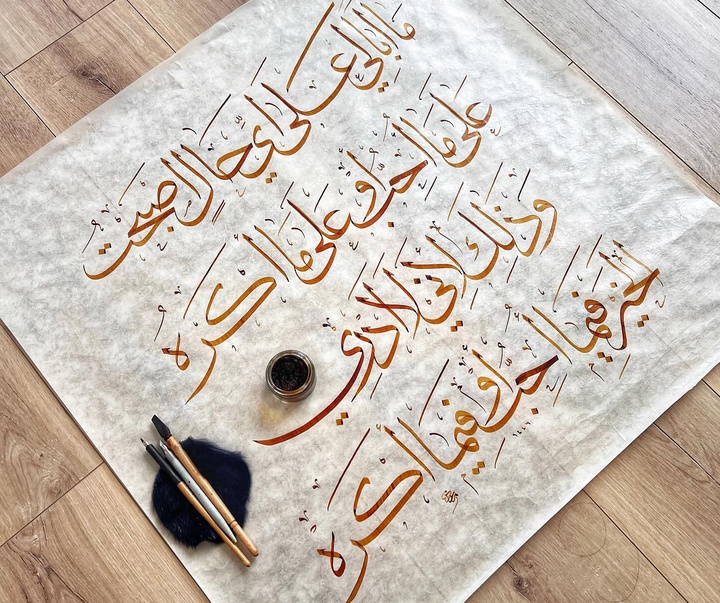 ما أبالي على أي حال أصبحت
على ما أحب أو على ما أكره
وذلك لأني لا أدري
الخير فيما أحب أو فيما أكره